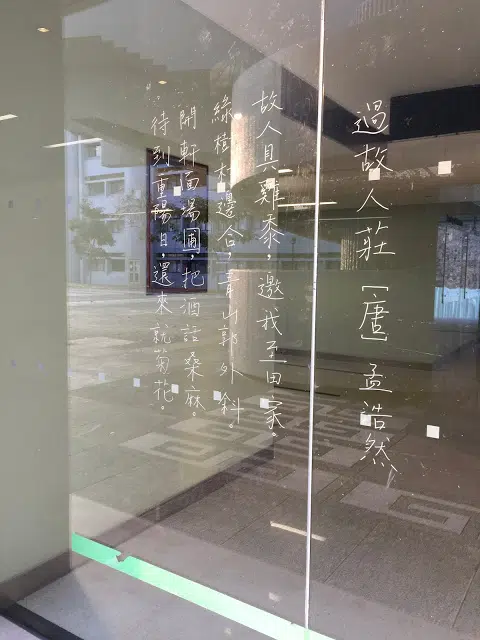 過故人莊 [唐] 孟浩然
故人具雞黍，邀我至田家。
綠樹村邊合，青山郭外斜。
開軒面場圃，把酒話桑麻。
待到重陽日，還來就菊花。